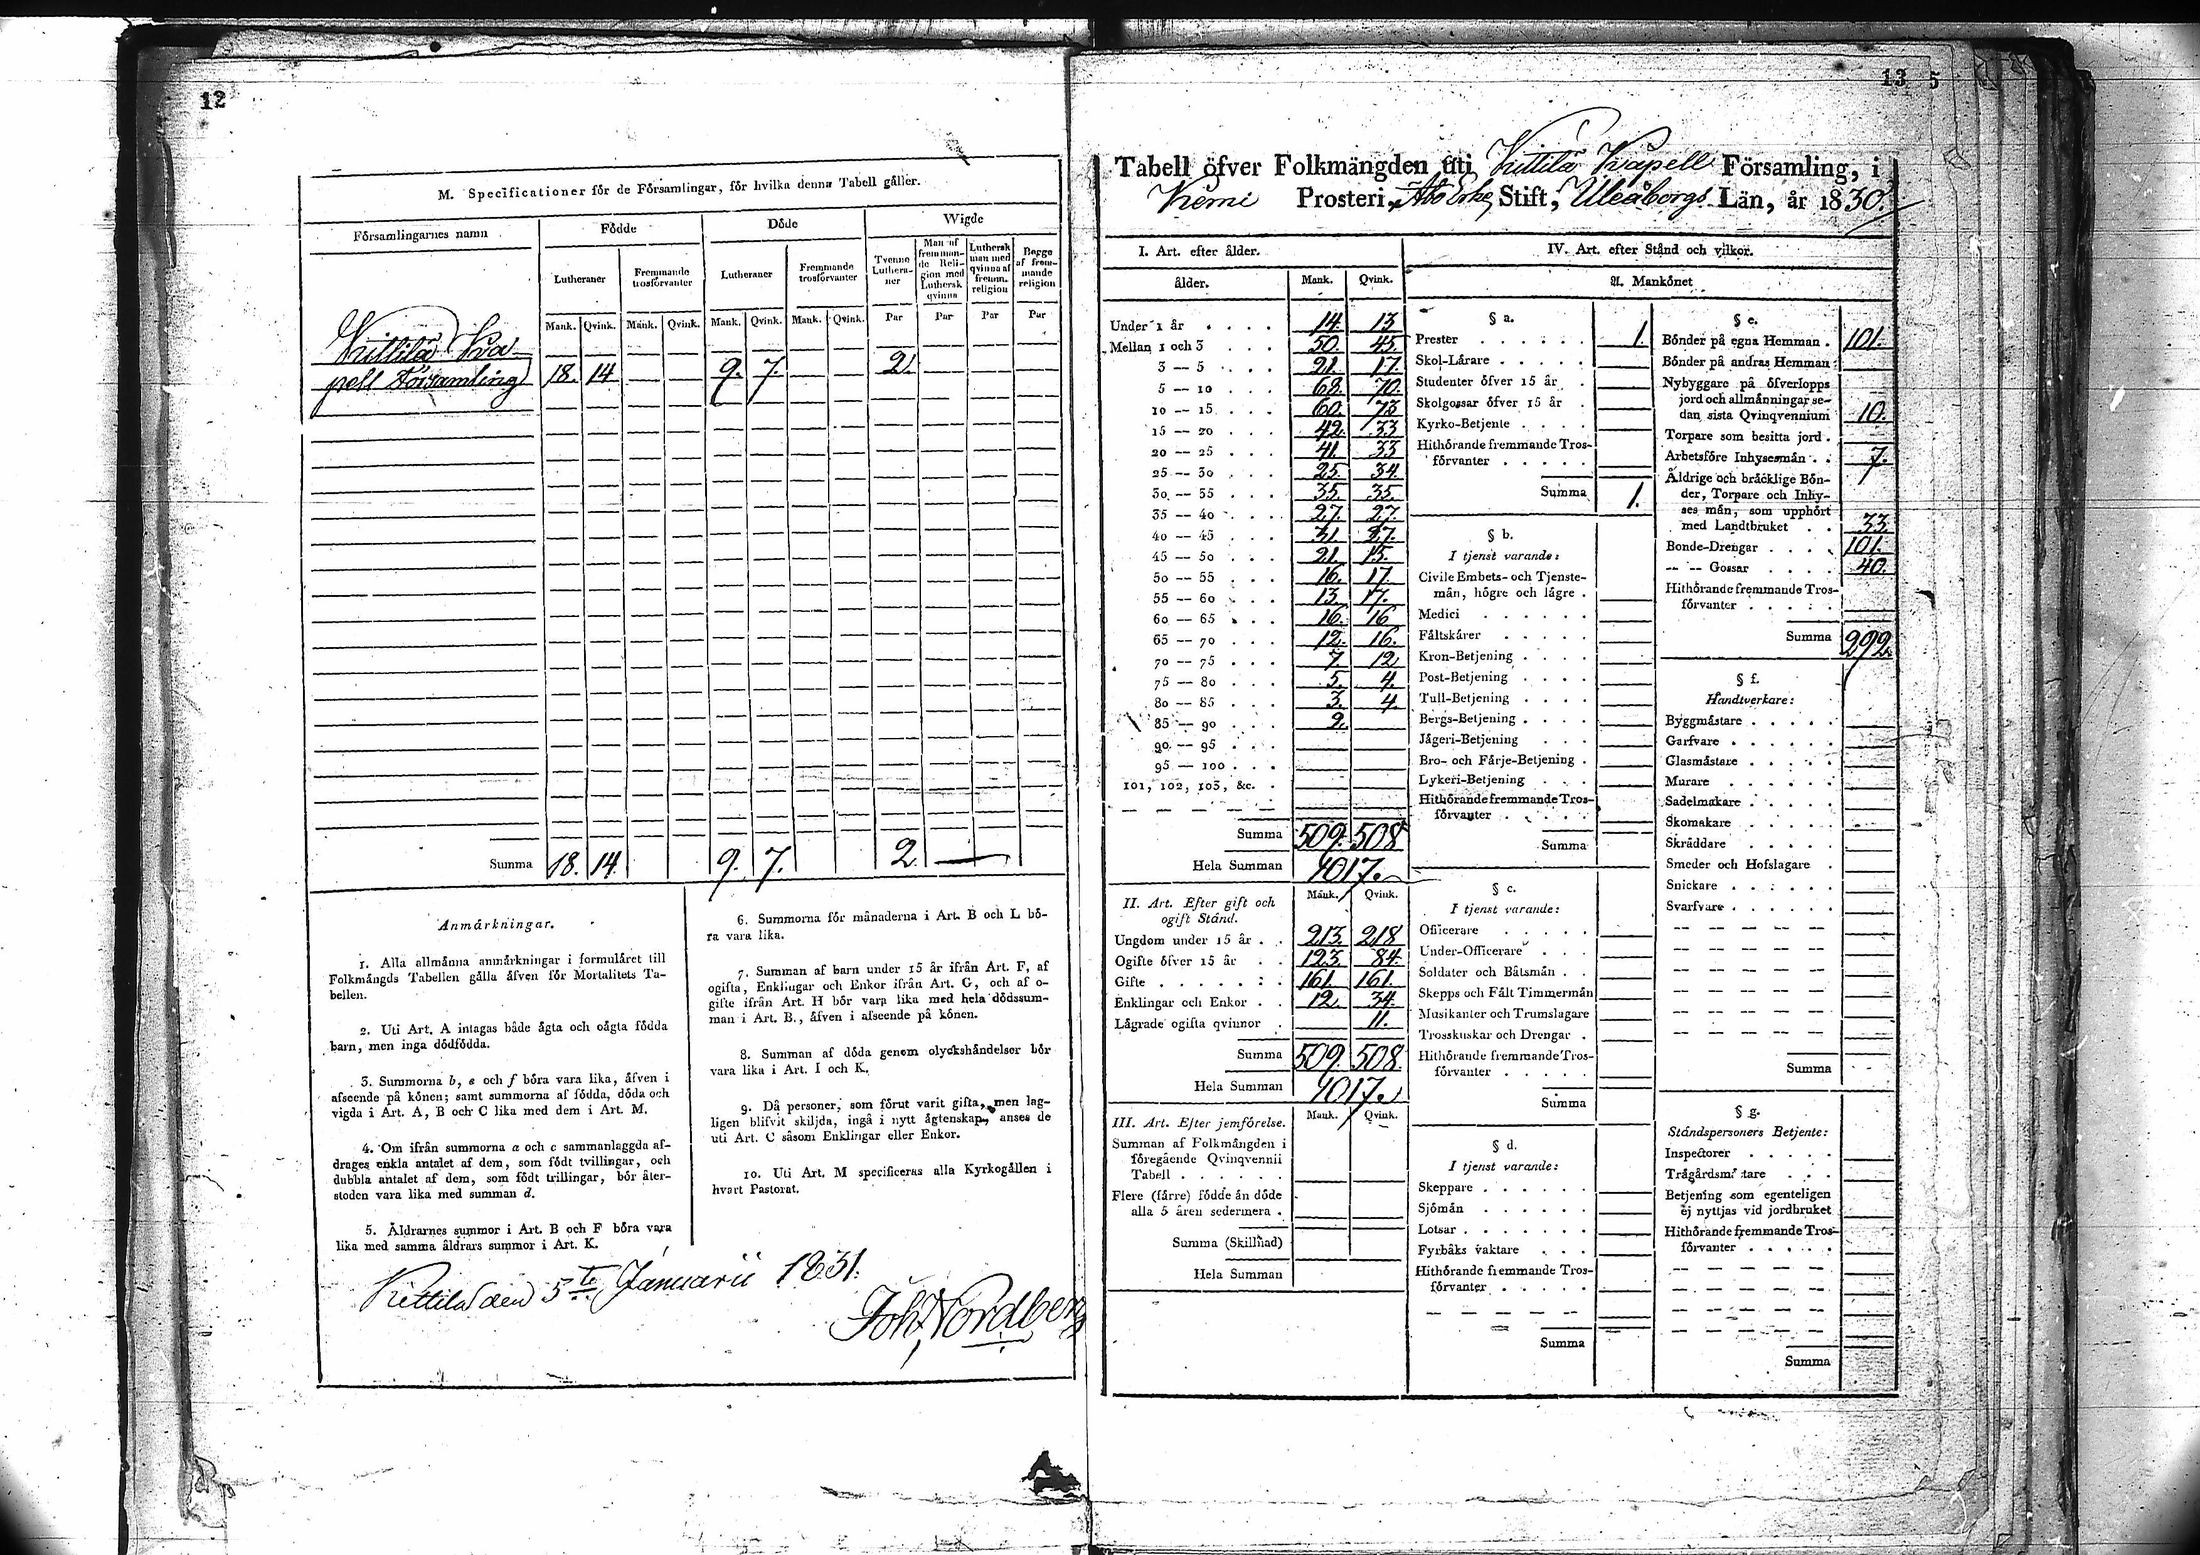 12
M. Specificationer för de Församlingar, för hvilka denna Tabell gäller.
Församlingarnes namn
Födde
Döde
Wigde
Lutheraner
Fremmande trosförvanter
Lutheraner
Fremmande trosförvanter
Tvenne Lutheraner
Man af fremmande Religion med Luthersk qvinna
Luthersk man med qvinna af fremm. religion
Begge af fremmande religion
Mank. Qvink. Mank. Qvink. Mank. Qvink. Mank. Qvink. Par Par Par Par
Kittilä Ka-
pell Församling 18. 14 9. 7. 2.
Summa 18. 14. 9. 7. 2
Anmärkningar.
1. Alla allmänna anmärkningar i formuläret till
Folkmängds Tabellen gälla äfven för Mortalitets Ta-
bellen.
2. Uti Art. A intagas både ägta och oägta födda
barn, men inga dödfödda.
3. Summorna b, e och f böra vara lika, äfven i
afseende på könen; samt summorna af födda, döda och
vigda i Art. A, B och C lika med dem i Art. M.
4. Om ifrån summorna a och c sammanlaggda af-
drages enkla antalet af dem, som födt tvillingar, och
dubbla antalet af dem, som födt trillingar, bör åter-
stoden vara lika med summan d.
5. Åldrarnes summor i Art. B och F böra vara
lika med samma åldrars summor i Art. K.
6. Summorna för månaderna i Art. B och L bö-
ra vara lika.
7. Summan af barn under 15 år ifrån Art. F, af
ogifta, Enklingar och Enkor ifrån Art. G, och af o-
gifte ifrån Art. H bör vara lika med hela dödssum-
man i Art. B., äfven i afseende på könen.
8. Summan af döda genom olyckshändelser bör
vara lika i Art. I och K.
9. Då personer, som förut varit gifta, men lag-
ligen blifvit skiljda, ingå i nytt ägtenskap, anses de
uti Art. C såsom Enklingar eller Enkor.
10. Uti Art. M specificeras alla Kyrkogällen i
hvart Pastorat.
Kittilä den 5te Januarii 1831.
Joh. Nordberg
13 5
Tabell öfver Folkmängden uti Kittilä Kapell Församling, i
Kemi Prosteri, Åbo Erke Stift, Uleåborgs Län, år 1830.
I. Art. efter ålder.
ålder. Mank. Qvink.
Under 1 år 14. 13
Mellan 1 och 3 50. 45.
3 — 5 21. 17.
5 — 10 68. 70.
10 — 15 60. 73
15 — 20 42. 33
20 — 25 41. 33
25 — 30 25. 34.
30 — 35 35. 35.
35 — 40 27. 27.
40 — 45 31. 27.
45 — 50 21. 15.
50 — 55 16. 17.
55 — 60 13. 17.
60 — 65 16. 16
65 — 70 12. 16.
70 — 75 7. 12
75 — 80 5. 4.
80 — 85 3. 4.
85 — 90 2.
90 — 95
95 — 100
101, 102, 103, &c.
Summa 509. 508
Hela Summan 1017.
II. Art. Efter gift och ogift Stånd. Mank. Qvink.
Ungdom under 15 år 213. 218
Ogifte öfver 15 år 123. 84.
Gifte 161. 161.
Enklingar och Enkor 12. 34.
Lägrade ogifta qvinnor 11.
Summa 509. 508.
Hela Summan 1017.
III. Art. Efter jemförelse. Mank. Qvink.
Summan af Folkmängden i
föregående Qvinqvennii
Tabell
Flere (färre) födde än döde
alla 5 åren sedermera
Summa (Skillnad)
Hela Summan
IV. Art. efter Stånd och vilkor.
A. Mankönet
§ a.
Prester 1.
Skol-Lärare
Studenter öfver 15 år
Skolgossar öfver 15 år
Kyrko-Betjente
Hithörande fremmande Tros-
förvanter
Summa 1.
§ b.
I tjenst varande:
Civile Embets- och Tjenste-
män, högre och lägre
Medici
Fältskärer
Kron-Betjening
Post-Betjening
Tull-Betjening
Bergs-Betjening
Jägeri-Betjening
Bro- och Färje-Betjening
Lykeri-Betjening
Hithörande fremmande Tros-
förvanter
Summa
§ c.
I tjenst varande:
Officerare
Under-Officerare
Soldater och Båtsmän
Skepps och Fält Timmermän
Musikanter och Trumslagare
Trosskuskar och Drengar
Hithörande fremmande Tros-
förvanter
Summa
§ d.
I tjenst varande:
Skeppare
Sjömän
Lotsar
Fyrbåks vaktare
Hithörande fremmande Tros-
förvanter
Summa
§ e.
Bönder på egna Hemman 101.
Bönder på andras Hemman
Nybyggare på öfverlopps
jord och allmänningar se-
dan sista Qvinqvennium 10.
Torpare som besitta jord
Arbetsföre Inhysesmän 7.
Äldrige och bräcklige Bön-
der, Torpare och Inhy-
ses män, som upphört
med Landtbruket 33.
Bonde-Drengar 101.
— — Gossar 40.
Hithörande fremmande Tros-
förvanter
Summa 292.
§ f.
Handtverkare:
Byggmästare
Garfvare
Glasmästare
Murare
Sadelmakare
Skomakare
Skräddare
Smeder och Hofslagare
Snickare
Svarfvare
Summa
§ g.
Ståndspersoners Betjente:
Inspectorer
Trägårdsmästare
Betjening som egenteligen
ej nyttjas vid jordbruket
Hithörande fremmande Tros-
förvanter
Summa